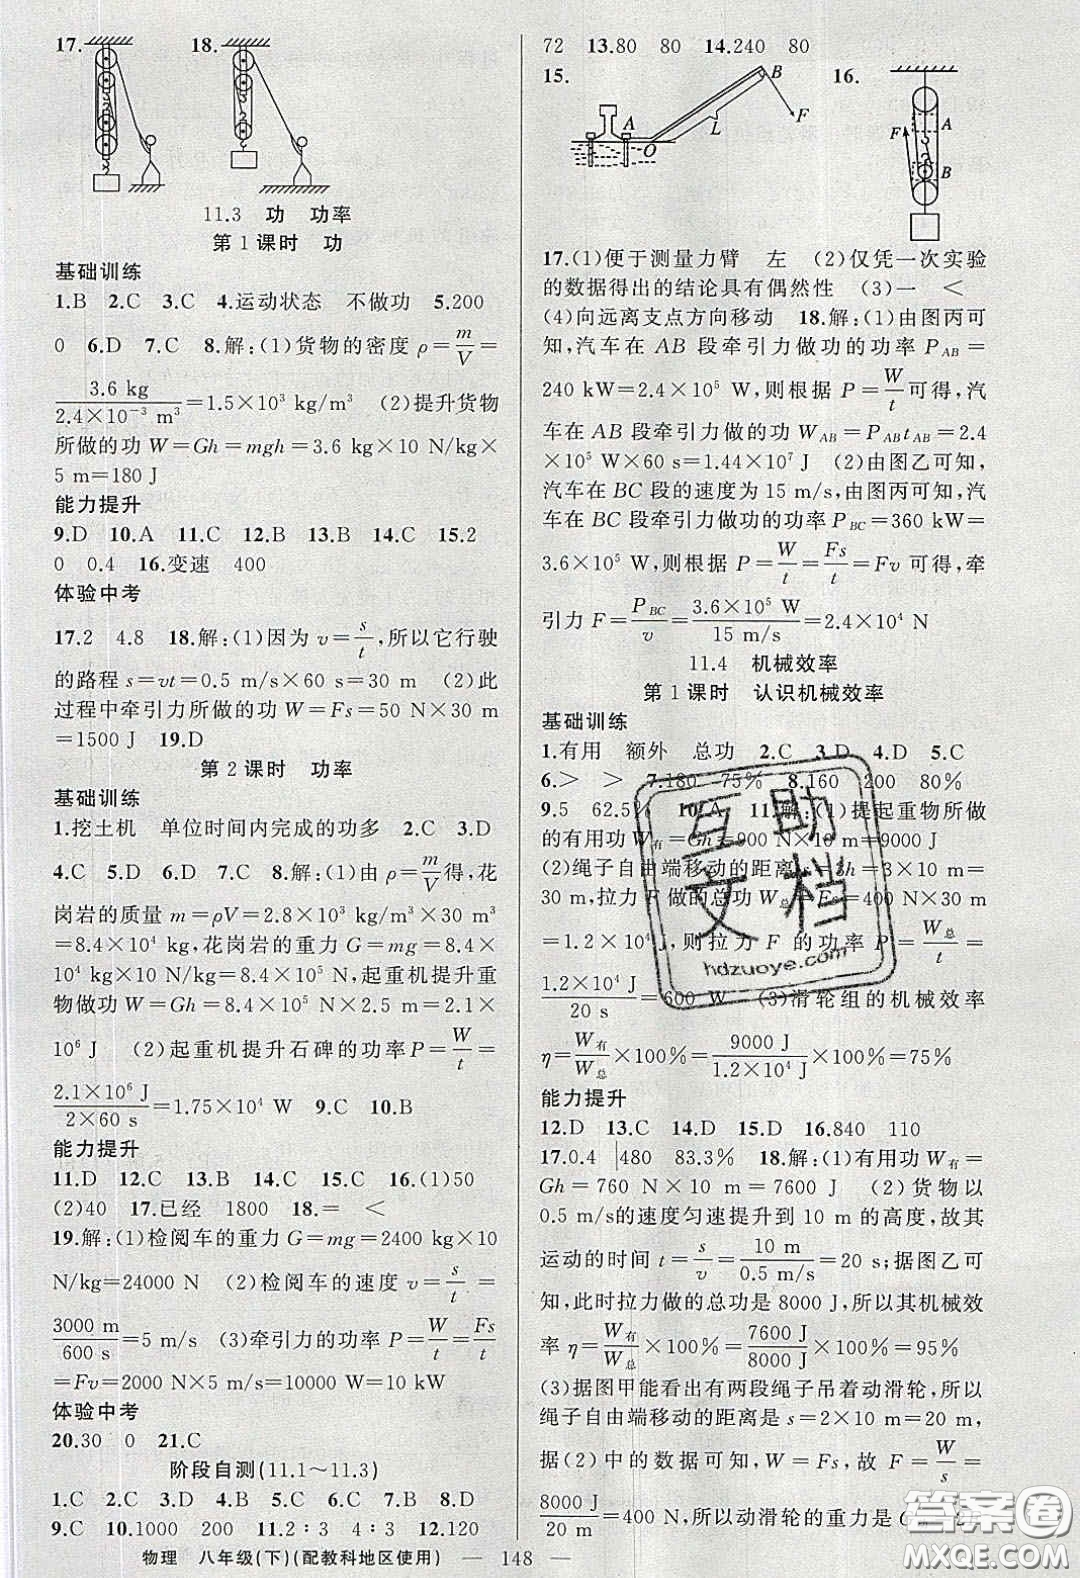 17.
18.
11.3 功 功率
第1课时 功
基础训练
1.B 2.C 3.C 4.运动状态 不做功 5.200
0 6.D 7.C 8.解:(1)货物的密度 ρ=m/V=
3.6 kg/2.4×10⁻³ m³=1.5×10³ kg/m³ (2)提升货物
所做的功 W=Gh=mgh=3.6 kg×10 N/kg×
5 m=180 J
能力提升
9.D 10.A 11.C 12.B 13.B 14.C 15.2
0 0.4 16.变速 400
体验中考
17.2 4.8 18.解:(1)因为 v=s/t,所以它行驶
的路程 s=vt=0.5 m/s×60 s=30 m (2)此
过程中牵引力所做的功 W=Fs=50 N×30 m
=1500 J 19.D
第2课时 功率
基础训练
1.挖土机 单位时间内完成的功多 2.C 3.D
4.C 5.D 6.D 7.C 8.解:(1)由 ρ=m/V得,花
岗岩的质量 m=ρV=2.8×10³ kg/m³×30 m³
=8.4×10⁴ kg,花岗岩的重力 G=mg=8.4×
10⁴ kg×10 N/kg=8.4×10⁵ N,起重机提升重
物做功 W=Gh=8.4×10⁵ N×2.5 m=2.1×
10⁶ J (2)起重机提升石碑的功率P=W/t=
2.1×10⁶ J/2×60 s=1.75×10⁴ W 9.C 10.B
能力提升
11.D 12.C 13.B 14.C 15.C 16.(1)50
(2)40 17.已经 1800 18.= <
19.解:(1)检阅车的重力 G=mg=2400 kg×10
N/kg=24000 N (2)检阅车的速度 v=s/t=
3000 m/600 s=5 m/s (3)牵引力的功率 P=W/t=Fs/t
=Fv=2000 N×5 m/s=10000 W=10 kW
体验中考
20.30 0 21.C
阶段自测(11.1~11.3)
1.C 2.C 3.D 4.B 5.D 6.B 7.B 8.D
9.C 10.1000 200 11.2:3 4:3 12.120
72 13.80 80 14.240 80
15.
A
B
F
L
O
16.
F
A
B
17.(1)便于测量力臂 左 (2)仅凭一次实验
的数据得出的结论具有偶然性 (3)一 <
(4)向远离支点方向移动 18.解:(1)由图丙可
知,汽车在 AB 段牵引力做功的功率 P_AB=
240 kW=2.4×10⁵ W,则根据 P=W/t可得,汽
车在 AB 段牵引力做的功 W_AB=P_AB t_AB=2.4
×10⁵ W×60 s=1.44×10⁷ J (2)由图乙可知,
汽车在 BC 段的速度为 15 m/s,由图丙可知,汽
车在 BC 段牵引力做功的功率 P_BC=360 kW=
3.6×10⁵ W,则根据 P=W/t=Fs/t=Fv 可得,牵
引力 F=P_BC/v=3.6×10⁵ W/15 m/s=2.4×10⁴ N
11.4 机械效率
第1课时 认识机械效率
基础训练
1.有用 额外 总功 2.C 3.D 4.D 5.C
6.> > 7.180 75% 8.160 200 80%
9.5 62.5% 10.A 11.解:(1)提起重物所做
的有用功 W有=Gh=900 N×10 m=9000 J
(2)绳子自由端移动的距离 s=3h=3×10 m=
30 m,拉力 F 做的总功 W总=Fs=400 N×30 m
=1.2×10⁴ J,则拉力 F 的功率 P=W总/t=
1.2×10⁴ J/20 s=600 W (3)滑轮组的机械效率
η=W有/W总×100%=9000 J/1.2×10⁴ J×100%=75%
能力提升
12.D 13.C 14.D 15.D 16.840 110
17.0.4 480 83.3% 18.解:(1)有用功 W有=
Gh=760 N×10 m=7600 J (2)货物以
0.5 m/s的速度匀速提升到 10 m 的高度,故其
运动的时间 t=s/v=10 m/0.5 m/s=20 s;据图乙可
知,此时拉力做的总功是 8000 J,所以其机械效
率 η=W有/W总×100%=7600 J/8000 J×100%=95%
(3)据图甲能看出有两段绳子吊着动滑轮,所以
绳子自由端移动的距离是 s=2×10 m=20 m,
据(2)中的数据可知,W=Fs,故 F=W/s=
8000 J/20 m=400 N,所以动滑轮的重力是
物理 八年级(下)(配教科地区使用) — 148 —
互助文档
hdzuoye.com
答案圈
MXQE.COM